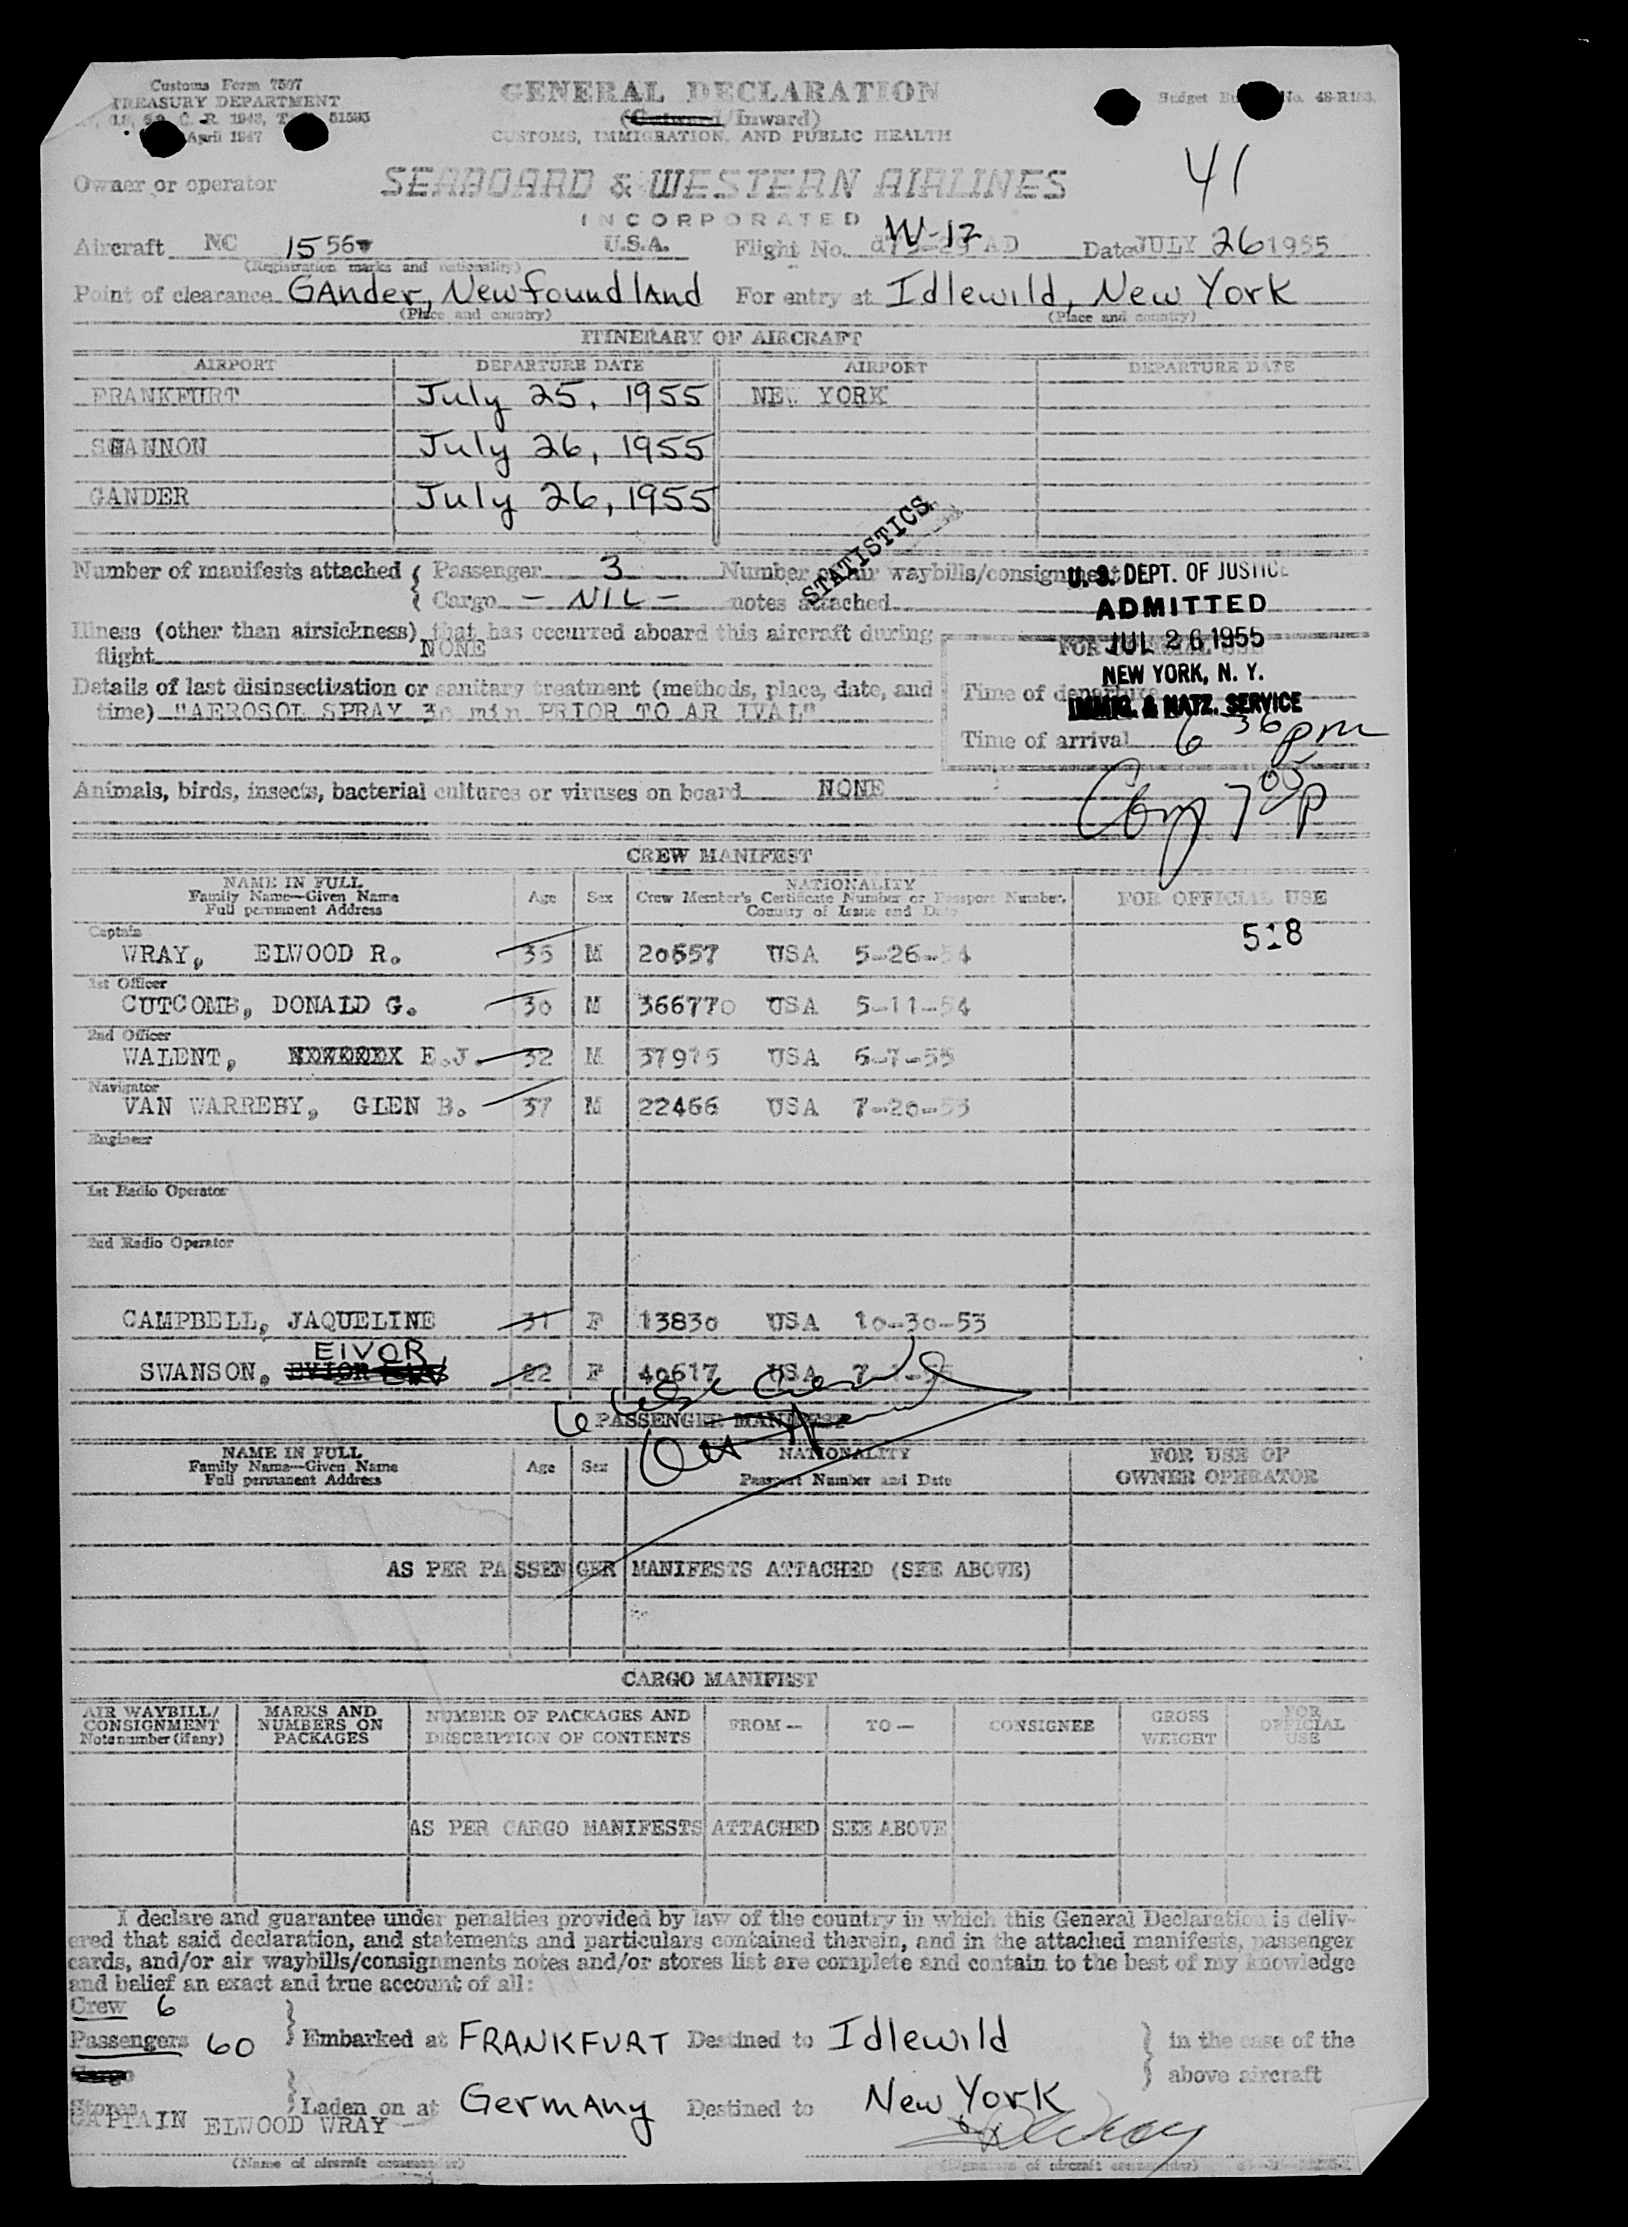 Customs Form 7507
TREASURY DEPARTMENT
April 1947
GENERAL DECLARATION
(Outward/Inward)
CUSTOMS, IMMIGRATION, AND PUBLIC HEALTH
Budget No. 48-R183.
41
Owner or operator SEABOARD & WESTERN AIRLINES
INCORPORATED
Aircraft NC 1556 U.S.A. Flight No. W-12 AD Date JULY 26 1955
(Registration marks and nationality)
Point of clearance GAnder, Newfoundland For entry at Idlewild, New York
(Place and country) (Place and country)
ITINERARY OF AIRCRAFT
AIRPORT DEPARTURE DATE AIRPORT DEPARTURE DATE
FRANKFURT July 25, 1955 NEW YORK
SHANNON July 26, 1955
GANDER July 26, 1955
STATISTICS
Number of manifests attached { Passenger 3 Number of air waybills/consignment
Cargo - NIL - notes attached
U. S. DEPT. OF JUSTICE
ADMITTED
JUL 26 1955
NEW YORK, N. Y.
IMMIG. & NATZ. SERVICE
Illness (other than airsickness) that has occurred aboard this aircraft during
flight NONE
FOR OFFICIAL USE
Details of last disinsectization or sanitary treatment (methods, place, date, and
time) "AEROSOL SPRAY 30 min PRIOR TO AR IVAL"
Time of departure
Time of arrival 6 36 pm
Com 7 05 p
Animals, birds, insects, bacterial cultures or viruses on board NONE
CREW MANIFEST
NAME IN FULL
Family Name—Given Name
Full permanent Address
Age Sex
NATIONALITY
Crew Member's Certificate Number or Passport Number.
Country of Issue and Date
FOR OFFICIAL USE
518
Captain
WRAY, ELWOOD R. 35 M 20557 USA 5-26-54
1st Officer
CUTCOMB, DONALD G. 30 M 366770 USA 5-11-54
2nd Officer
WALENT, E.J. 32 M 37975 USA 6-7-55
Navigator
VAN WARREBY, GLEN B. 37 M 22466 USA 7-20-53
Engineer
1st Radio Operator
2nd Radio Operator
CAMPBELL, JAQUELINE 31 F 13830 USA 10-30-53
EIVOR
SWANSON, 22 F 40617 USA
6
PASSENGER MANIFEST
NAME IN FULL
Family Name—Given Name
Full permanent Address
Age Sex
NATIONALITY
Passport Number and Date
FOR USE OF
OWNER OPERATOR
AS PER PASSENGER MANIFESTS ATTACHED (SEE ABOVE)
CARGO MANIFEST
AIR WAYBILL/
CONSIGNMENT
Note number (if any)
MARKS AND
NUMBERS ON
PACKAGES
NUMBER OF PACKAGES AND
DESCRIPTION OF CONTENTS
FROM— TO— CONSIGNEE
GROSS
WEIGHT
FOR
OFFICIAL
USE
AS PER CARGO MANIFESTS ATTACHED SEE ABOVE
I declare and guarantee under penalties provided by law of the country in which this General Declaration is deliv-
ered that said declaration, and statements and particulars contained therein, and in the attached manifests, passenger
cards, and/or air waybills/consignments notes and/or stores list are complete and contain to the best of my knowledge
and belief an exact and true account of all:
Crew 6
Passengers 60 } Embarked at FRANKFURT Destined to Idlewild } in the case of the
Cargo above aircraft
Stores } Laden on at Germany Destined to New York
CAPTAIN ELWOOD WRAY
(Name of aircraft commander) (Signature of aircraft commander)